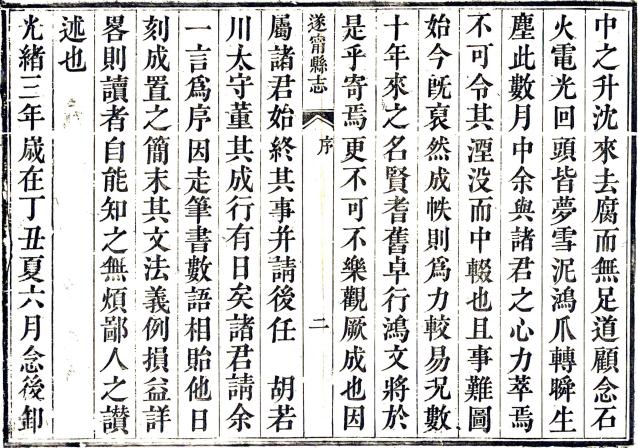 中之升沈來去腐而無足道顧念石
火電光回頭皆夢雪泥鴻爪轉瞬生
塵此數月中余與諸君之心力萃焉
不可令其湮没而中輟也且事難圖
始今旣裒然成帙則爲力較易況數
十年來之名賢耆舊卓行鴻文將於
是乎寄焉更不可不樂觀厥成也因
遂甯縣志 序 二
屬諸君始終其事并請後任 胡若
川太守董其成行有日矣諸君請余
一言爲序因走筆書數語相貽他日
刻成置之簡末其文法義例損益詳
畧則讀者自能知之無煩鄙人之讚
述也
光緒三年歲在丁丑夏六月念後卸